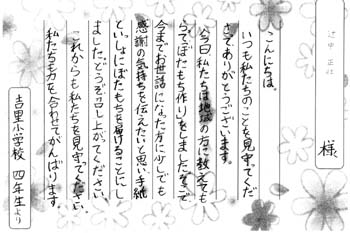 様
こんにちは。
いつも私たちのことを見守ってくだ
さってありがとうございます。
今日私たちは地域の方に教えても
らって「ぼたもち作り」をしました。そこで
今までお世話になった方に少しでも
感謝の気持ちを伝えたいと思い手紙
といっしょにぼたもちを届けることにし
ました。どうぞ召し上がってください。
これからも私たちを見守ってください。
私たちも力を合わせてがんばります
吉里小学校 四年生より